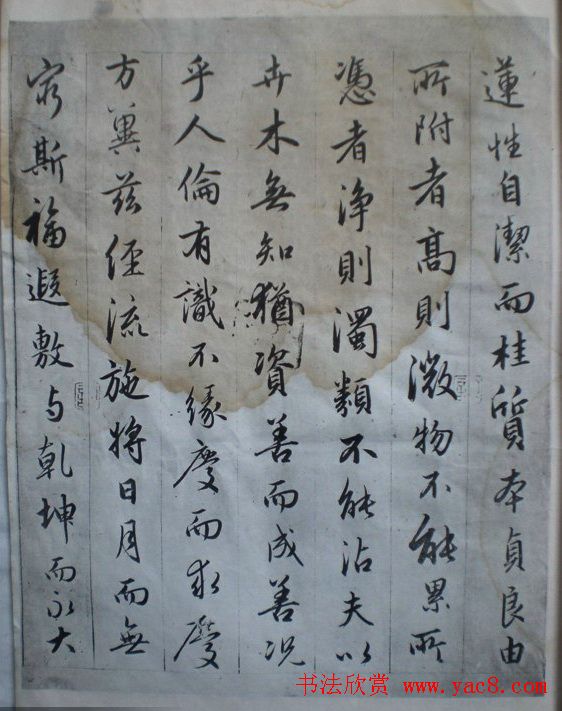 蓮性自潔而桂質本貞良由
所附者高則微物不能累所
憑者淨則濁類不能沾夫以
卉木無知猶資善而成善況
乎人倫有識不緣慶而求慶
方冀茲經流施將日月而無
窮斯福遐敷與乾坤而永大
书法欣赏 www.yac8.com